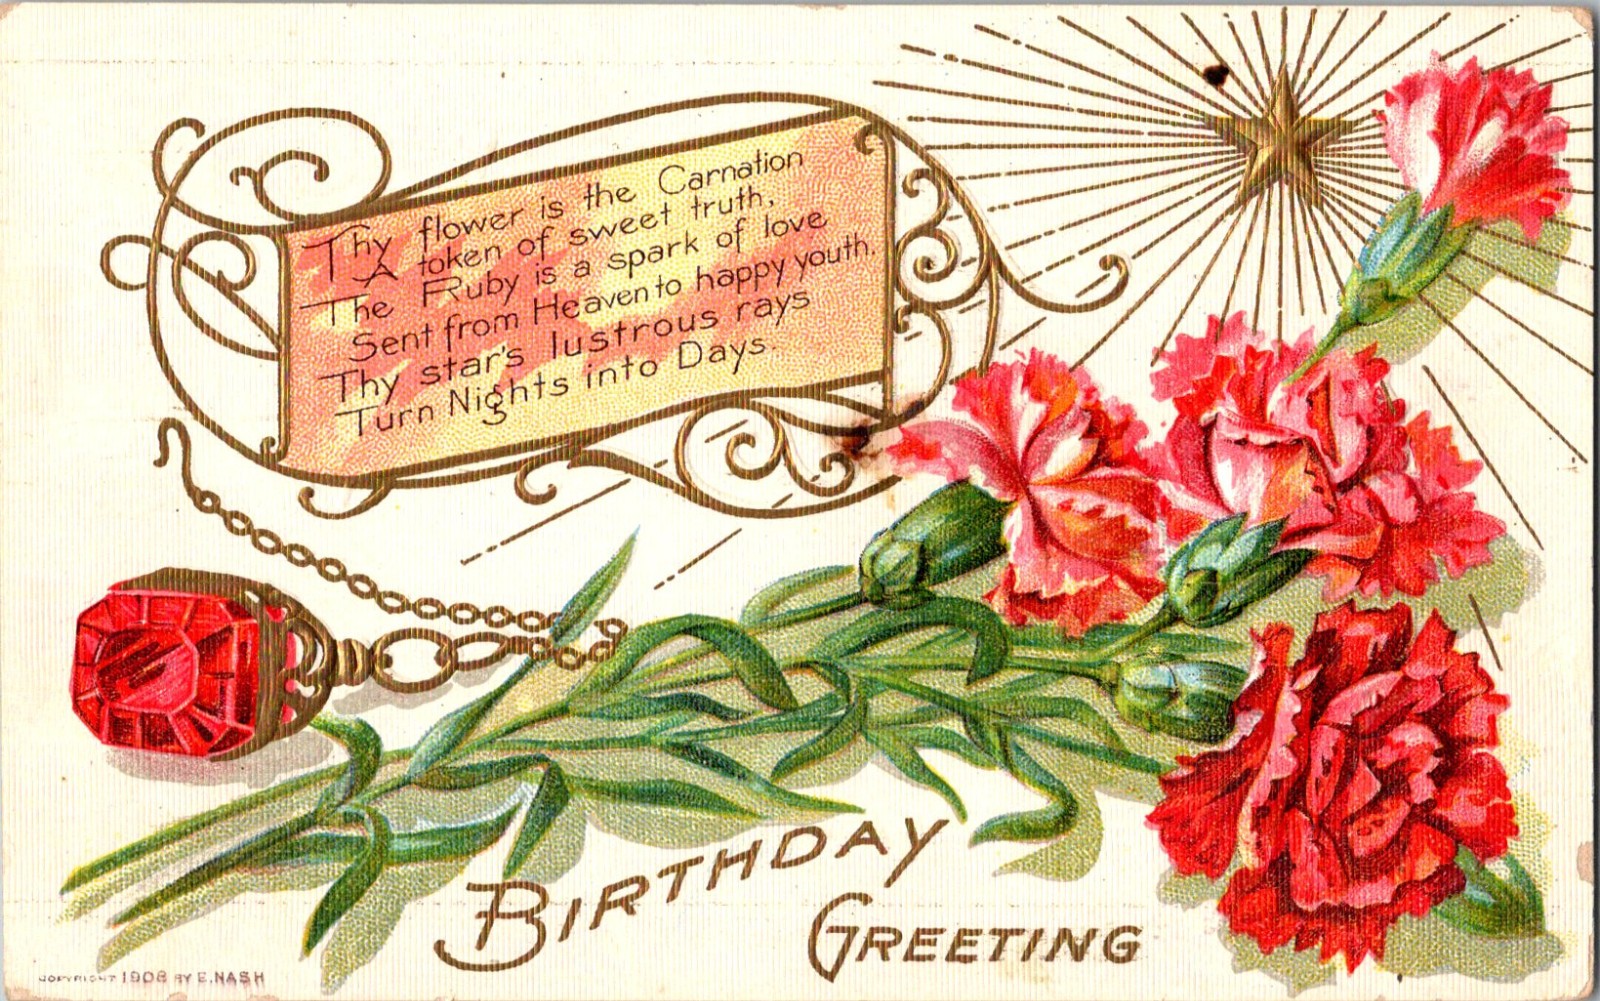 Thy flower is the Carnation
A token of sweet truth,
The Ruby is a spark of love
Sent from Heaven to happy youth.
Thy star's lustrous rays
Turn Nights into Days.
BIRTHDAY
GREETING
COPYRIGHT 1908 BY E. NASH